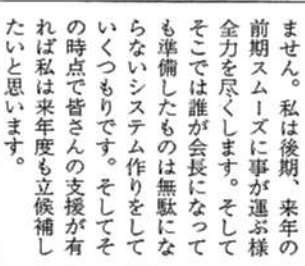 ません。私は後期、来年の
前期スムーズに事が運ぶ様
全力を尽くします。そして
そこでは誰が会長になって
も準備したものは無駄にな
らないシステム作りをして
いくつもりです。そしてそ
の時点で皆さんの支援が有
れば私は来年度も立候補し
たいと思います。